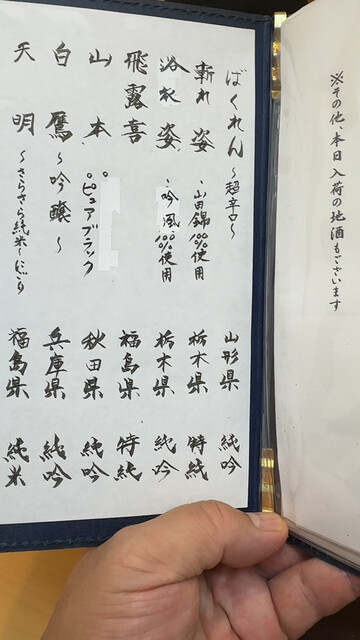 ※その他、本日入荷の地酒もございます
ばくれん 〜超辛口〜 山形県 純吟
斬れ 姿 ・山田錦100%使用 栃木県 特純
浴衣 姿 ・吟風100%使用 栃木県 純吟
飛露喜 福島県 特純
山本 °ピュアブラック 秋田県 純吟
白鷹 〜吟醸〜 兵庫県 純吟
天明 〜さらさら純米〜にごり 福島県 純米